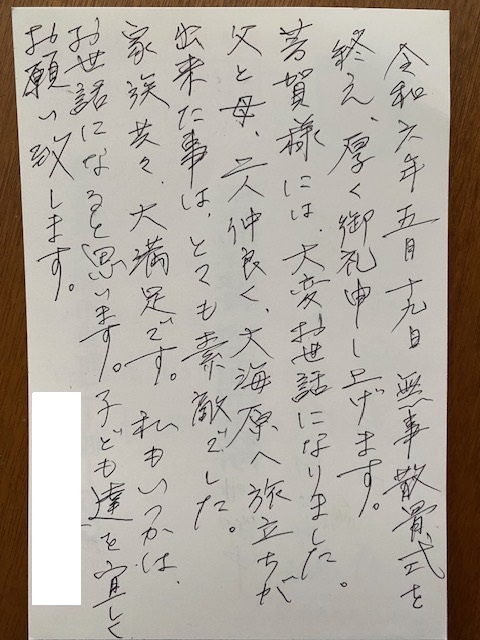 令和六年五月十九日 無事散骨式を
終え、厚く御礼申し上げます。
芳賀様には、大変お世話になりました。
父と母、二人仲良く、大海原へ旅立ちが
出来た事は、とても素敵でした。
家族共々、大満足です。私もいつかは、
お世話になると思います。子ども達を宜しく
お願い致します。